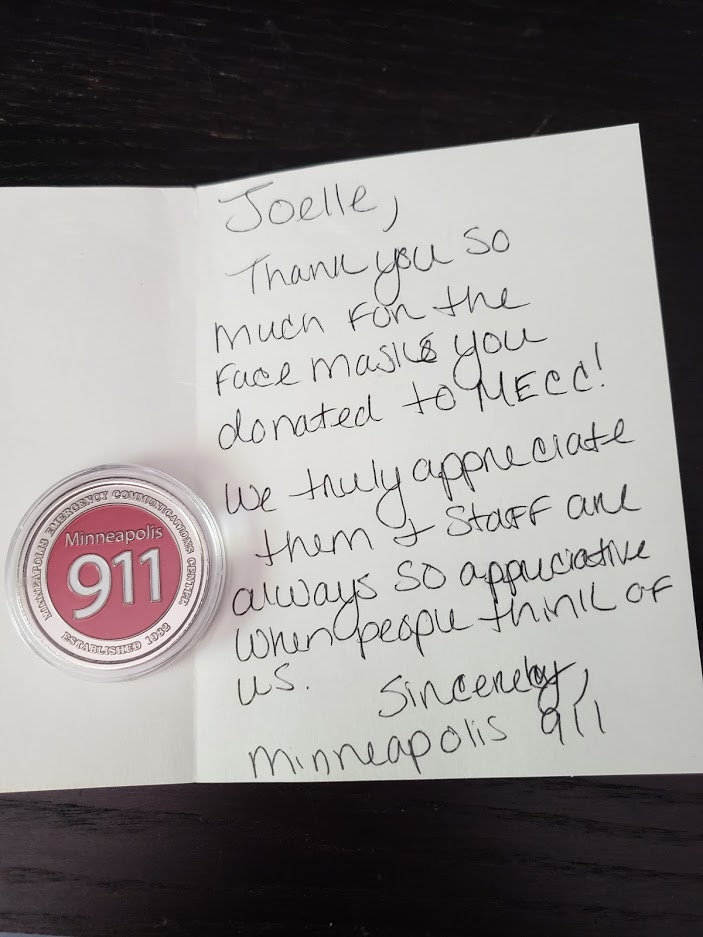 Joelle,
Thank you so
much for the
face masks you
donated to MECC!
We truly appreciate
them + staff are
always so appreciative
when people think of
us.
Sincerely,
Minneapolis 911
MINNEAPOLIS EMERGENCY COMMUNICATIONS CENTER
Minneapolis
911
ESTABLISHED 1982